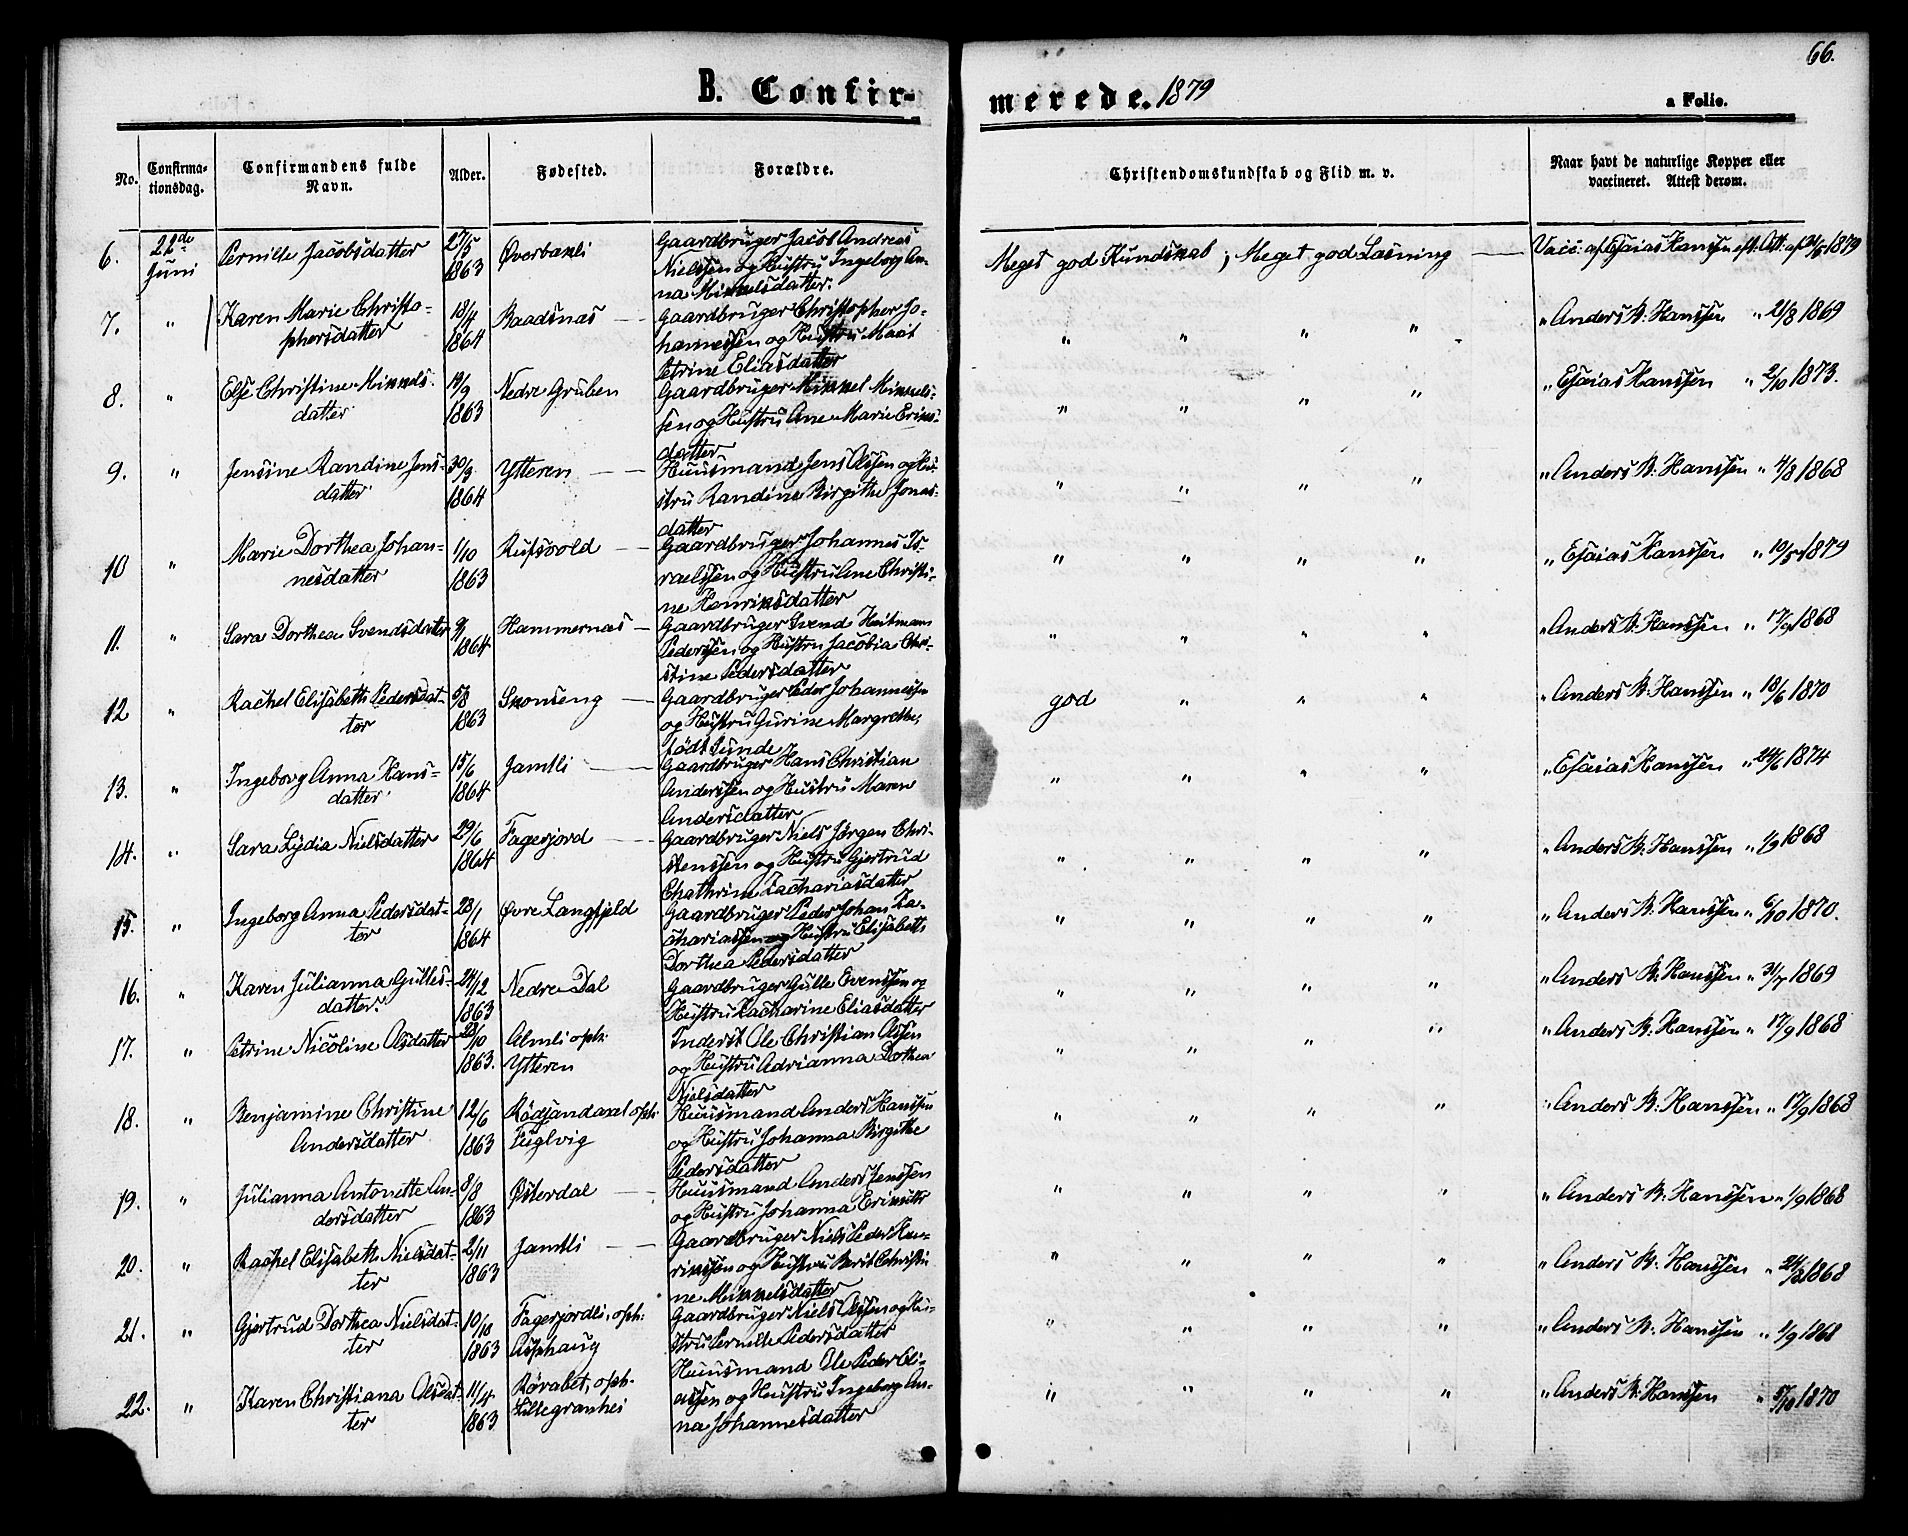 66.
B. Confir-
merede. 1879
a Folio.
No.
Confirma-
tionsdag.
Confirmandens fulde
Navn.
Alder.
Fødested.
Forældre.
Christendomskundskab og Flid m. v.
Naar havt de naturlige Kopper eller
vaccineret. Attest derom.
6. 22de Juni Pernille Jacobsdatter 27/5 1863 Gaardbruger Jacob Andreas
Nielssen og Hustru Ingeborg An-
na Mikkelsdatter.
Meget god Kundskab; Meget god Læsning — Vacc. af Esaias Hanssen eft. Att. af 1879
7. " Karen Marie Christo-
phersdatter 18/4 1864 Baadsnæs — Gaardbruger Christopher Jo-
hannessen og Hustru Marit
Petrine Eliasdatter
" " " " " Anders B. Hanssen " 21/8 1869
8. " Else Christine Mikkels-
datter 19/9 1863 Nedre Gruben Gaardbruger Mikkel Mikkels-
sen og Hustru Ane Marie Eriks-
datter
" " " " " Esaias Hanssen " 2/10 1873.
9. " Jensine Randine Jens-
datter 30/3 1864 Ytteren — Huusmand Jens Olssen og Hu-
stru Randine Birgithe Jonas-
datter
" " " " " Anders B. Hanssen " 4/8 1868
10 " Marie Dorthea Johan-
nesdatter 1/10 1863 Rufsvold — Gaardbruger Johannes Is-
raelssen og Hustru Ane Christi-
ne Henriksdatter
" " " " " Esaias Hanssen " 19/5 1879
11. " Sara Dorthea Svendsdatter 1864 Hammernæs — Gaardbruger Svend Heitmann
Pederssen og Hustru Jacobia Chri-
stine Pedersdatter
" " " " " Anders B. Hanssen " 17/9 1868
12 " Rachel Elisabeth Pedersdat-
ter 5/8 1863 Skonseng — Gaardbruger Peder Johannessen
og Hustru Gurine Margrethe,
født Sunde
god " " " " Anders B. Hanssen " 18/6 1870
13. " Ingeborg Anna Hans-
datter 15/6 1864 Jamtli — Gaardbruger Hans Christian
Anderssen og Hustru Maren
Andersdatter
" " " " " Esaias Hanssen " 24/6 1874
14. " Sara Lydia Nielsdatter 29/6 1864 Fagerjord — Gaardbruger Niels Jørgen Chri-
stenssen og Hustru Gjertrud
Chathrine Zachariasdatter
" " " " " Anders B. Hanssen " 1/9 1868
15. " Ingeborg Anna Pedersdat-
ter 23/1 1864 Øvre Langfjeld Gaardbruger Peder Johan Za-
chariassen og Hustru Elisabeth
Dorthea Pedersdatter
" " " " " Anders B. Hanssen " 6/10 1870.
16. " Karen Julianna Gulles-
datter. 24/12 1863 Nedre Dal Gaardbruger Gulle Evenssen og
Hustru Katharine Eliasdatter
" " " " " Anders B. Hanssen " 31/7 1869
17. " Petrine Nicoline Olsdatter 23/10 1863. Almli oph.
Ytteren Inderst Ole Christian Olssen
og Hustru Adrianna Dorthea
Nielsdatter
" " " " " Anders B. Hanssen " 17/9 1868
18. " Benjamine Christine
Andersdatter 12/6 1863 Rødsandaxel oph.
Fuglvig Huusmand Anders Hanssen
og Hustru Johanna Birgithe
Pedersdatter
" " " " " Anders B. Hanssen " 17/9 1868
19. " Julianna Antonette An-
dersdatter 8/8 1863 Østerdal — Huusmand Anders Jenssen
og Hustru Johanna Eriksdtr
" " " " " Anders B. Hanssen " 1/9 1868
20. " Rachel Elisabeth Nielsdat-
ter 2/11 1863 Jamtli — Gaardbruger Niels Peder Hen-
rikssen og Hustru Berit Christi-
ne Mikkelsdatter
" " " " " Anders B. Hanssen " 1868
21. " Gjertrud Dorthea Nielsdat-
ter 10/10 1863 Fagerjordli, oph.
Asphaug Gaardbruger Niels Olssen og Hu-
stru Pernille Pedersdatter
" " " " " Anders B. Hanssen " 1/9 1868
22. " Karen Christiana Olsdat-
ter 11/4 1863 oph. Huusmand Ole Peder Eli-
assen og Hustru Ingeborg An-
na Johannesdatter
" " " " " Anders B. Hanssen " 1870